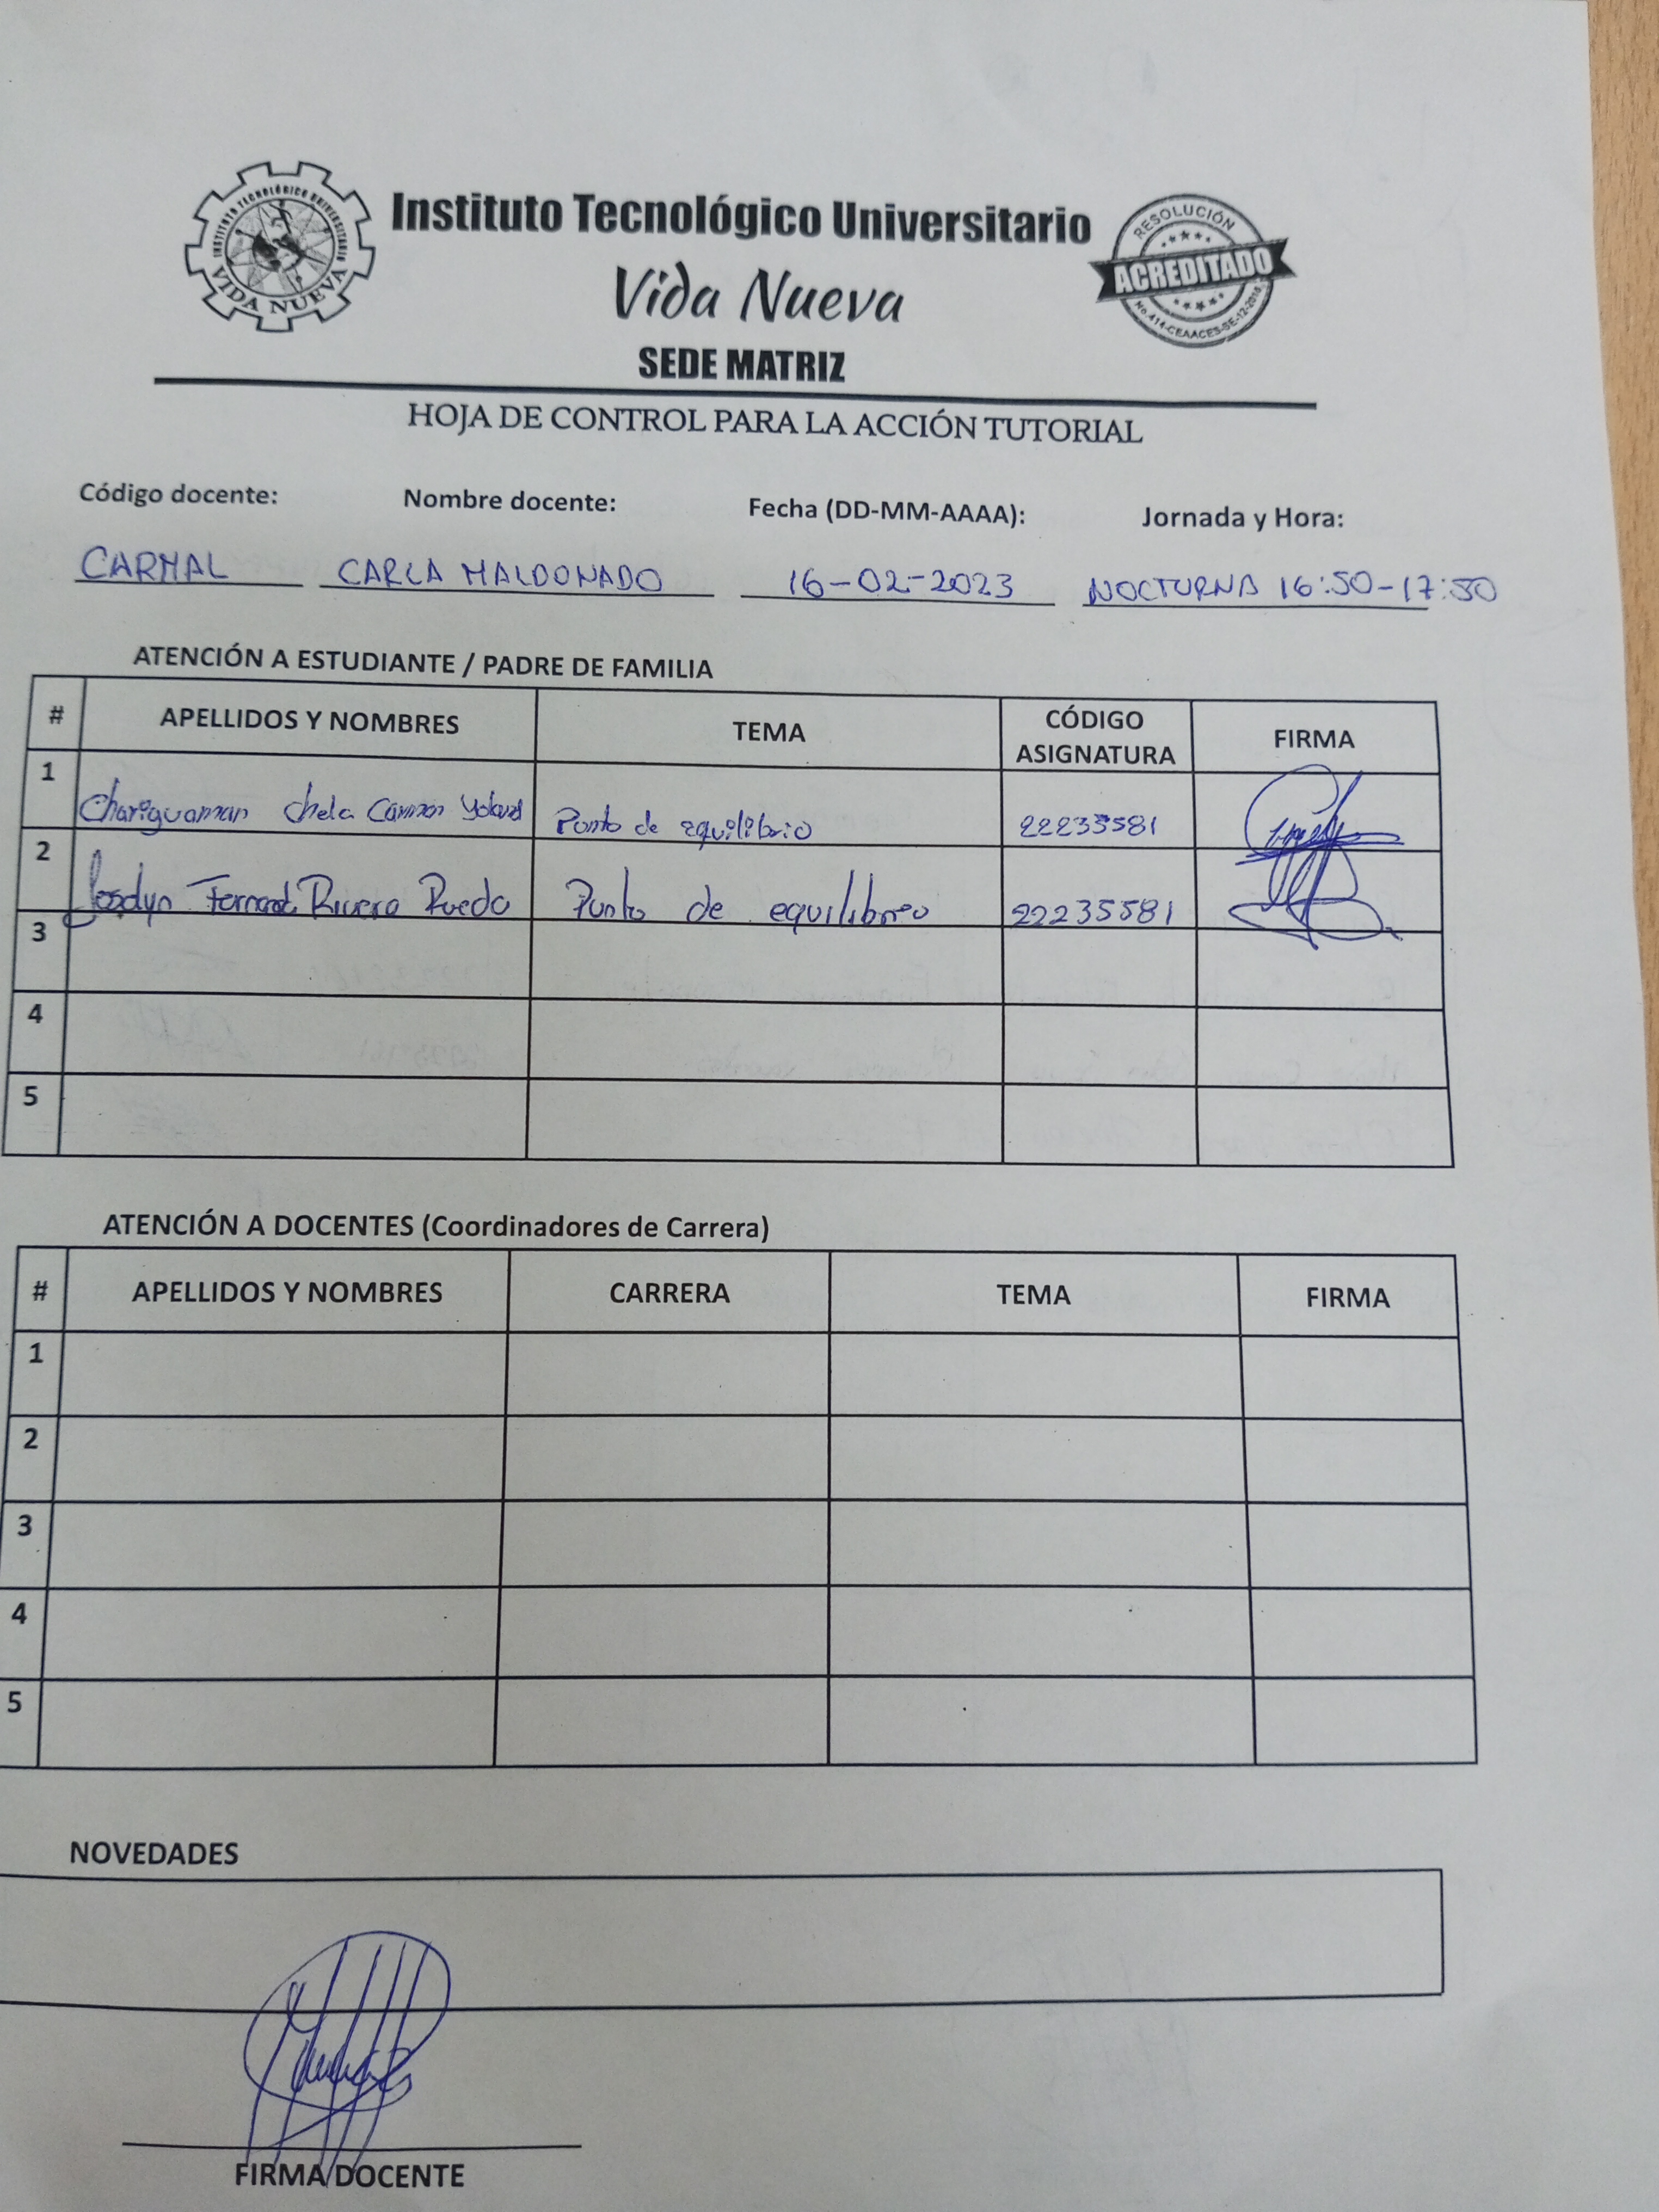 INSTITUTO TECNOLÓGICO UNIVERSITARIO
VIDA NUEVA
Instituto Tecnológico Universitario
Vida Nueva
SEDE MATRIZ
RESOLUCIÓN
ACREDITADO
No.414-CEAACES-SE-12-2018
HOJA DE CONTROL PARA LA ACCIÓN TUTORIAL
Código docente: Nombre docente: Fecha (DD-MM-AAAA): Jornada y Hora:
CARMAL CARLA MALDONADO 16-02-2023 NOCTURNA 16:50-17:50
ATENCIÓN A ESTUDIANTE / PADRE DE FAMILIA
# APELLIDOS Y NOMBRES TEMA CÓDIGO ASIGNATURA FIRMA
1 Chariguaman Chela Carmen Punto de equilibrio 22235581
2 Joselyn Fernand Rivera Ruedo Punto de equilibreo 22235581
3
4
5
ATENCIÓN A DOCENTES (Coordinadores de Carrera)
# APELLIDOS Y NOMBRES CARRERA TEMA FIRMA
1
2
3
4
5
NOVEDADES
FIRMA DOCENTE